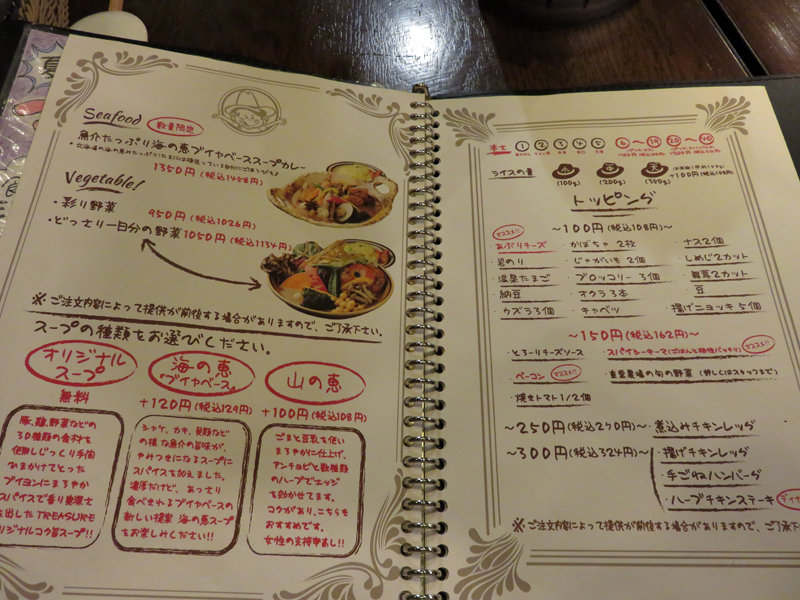 Seafood
数量限定
魚介たっぷり海の恵ブイヤベーススープカレー
1350円(税込1458円)
Vegetable!
・彩り野菜
950円(税込1026円)
・どっさり一日分の野菜1050円(税込1134円)
※ご注文内容によって提供が前後する場合がありますので、ご了承下さい。
スープの種類をお選びください。
オリジナル
スープ
無料
豚、鶏、野菜などの
30種類の食材を
使用しじっくり手間
ひまかけてとった
ブイヨンにまろやか
スパイスで香り
出したTREASURE
オリジナルコク旨スープ!!
海の恵
"ブイヤベース"
+120円(税込129円)
シャケ、カキ、貝類など
の様な魚介の旨味が、
やみつきになるスープに
スパイスを加えました。
濃厚だけど、あっさり
食べきれるブイヤベースの
新しい提案 海の恵スープ
をお楽しみください!!
山の恵
+100円(税込108円)
ごまと豆乳を使い
まろやかに仕上げ、
アンチョビと数種類
のハーブでエッジ
を効かせてます。
コクがあり、こちらも
おすすめです。
女性の支持率高し!!
辛さ 1 2 3 4 5 6~19 20~40
ライスの量
小 中 大
(100g) (200g) (350g)
+100円(税込108円)
トッピング
~100円(税込108円)~
オススメ!!
・あぶりチーズ ・かぼちゃ 2枚 ・ナス2個
・岩のり ・じゃがいも 2個 ・しめじ2カット
・温泉たまご ・ブロッコリー 3個 ・舞茸2カット
・納豆 ・オクラ3本 ・豆
・ウズラ3個 ・キャベツ ・揚げニョッキ5個
~150円(税込162円)~
・とろ~りチーズソース ・スパイシーキーマ(ごはんと相性バッチリ) オススメ!!
・ベーコン オススメ!! ・自家農場の旬の野菜(詳しくはスタッフまで)
・焼きトマト1/2個
~250円(税込270円)~ 煮込みチキンレッグ
~300円(税込324円)~ ・揚げチキンレッグ
・手ごねハンバーグ
・ハーブチキンステーキ
※ご注文内容によって提供が前後する場合がありますので、ご了承下